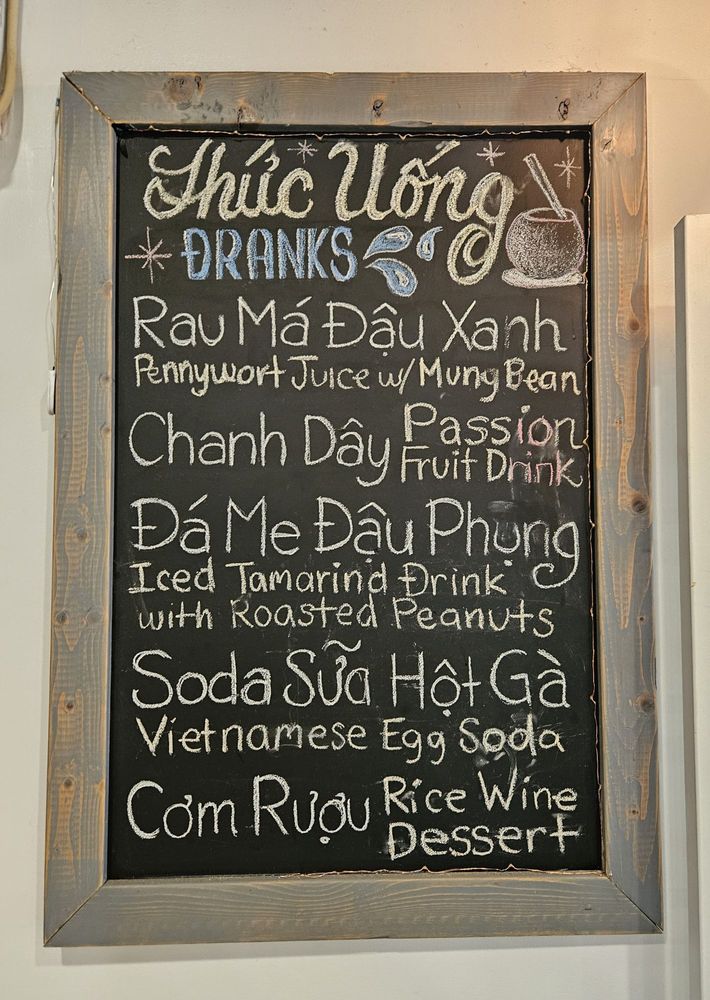 Thức Uống
ĐRANKS
Rau Má Đậu Xanh
Pennywort Juice w/ Mung Bean
Chanh Dây Passion
Fruit Drink
Đá Me Đậu Phụng
Iced Tamarind Đrink
with Roasted Peanuts
Soda Sữa Hột Gà
Vietnamese Egg Soda
Cơm Rượu Rice Wine
Dessert